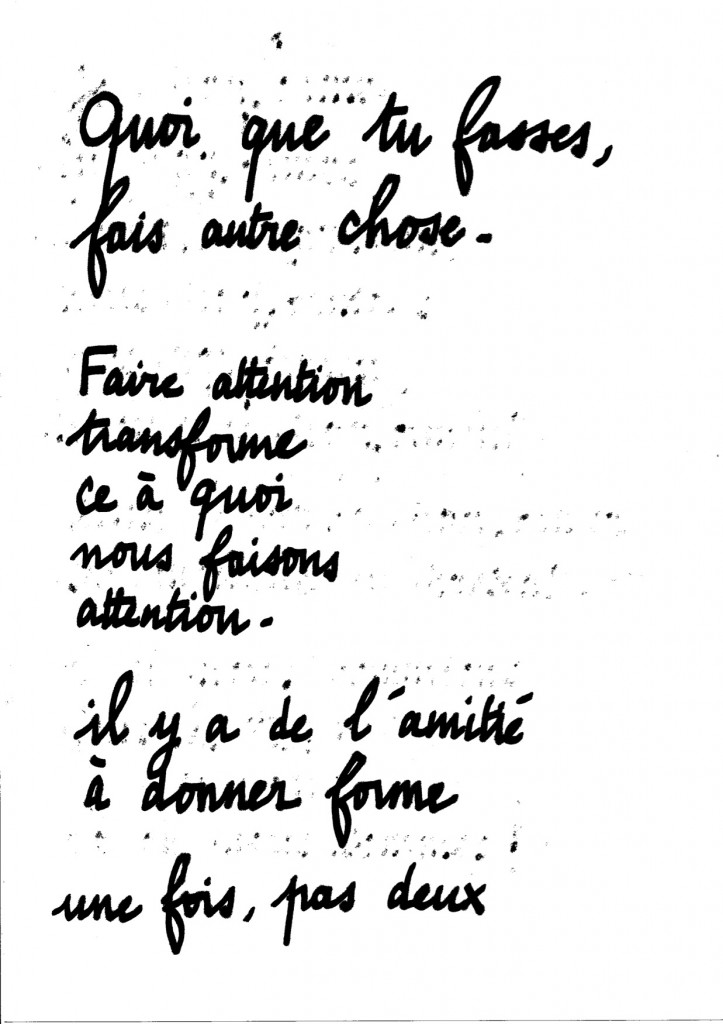 Quoi que tu fasses,
fais autre chose.
Faire attention
transforme
ce à quoi
nous faisons
attention.
il y a de l'amitié
à donner forme
une fois, pas deux